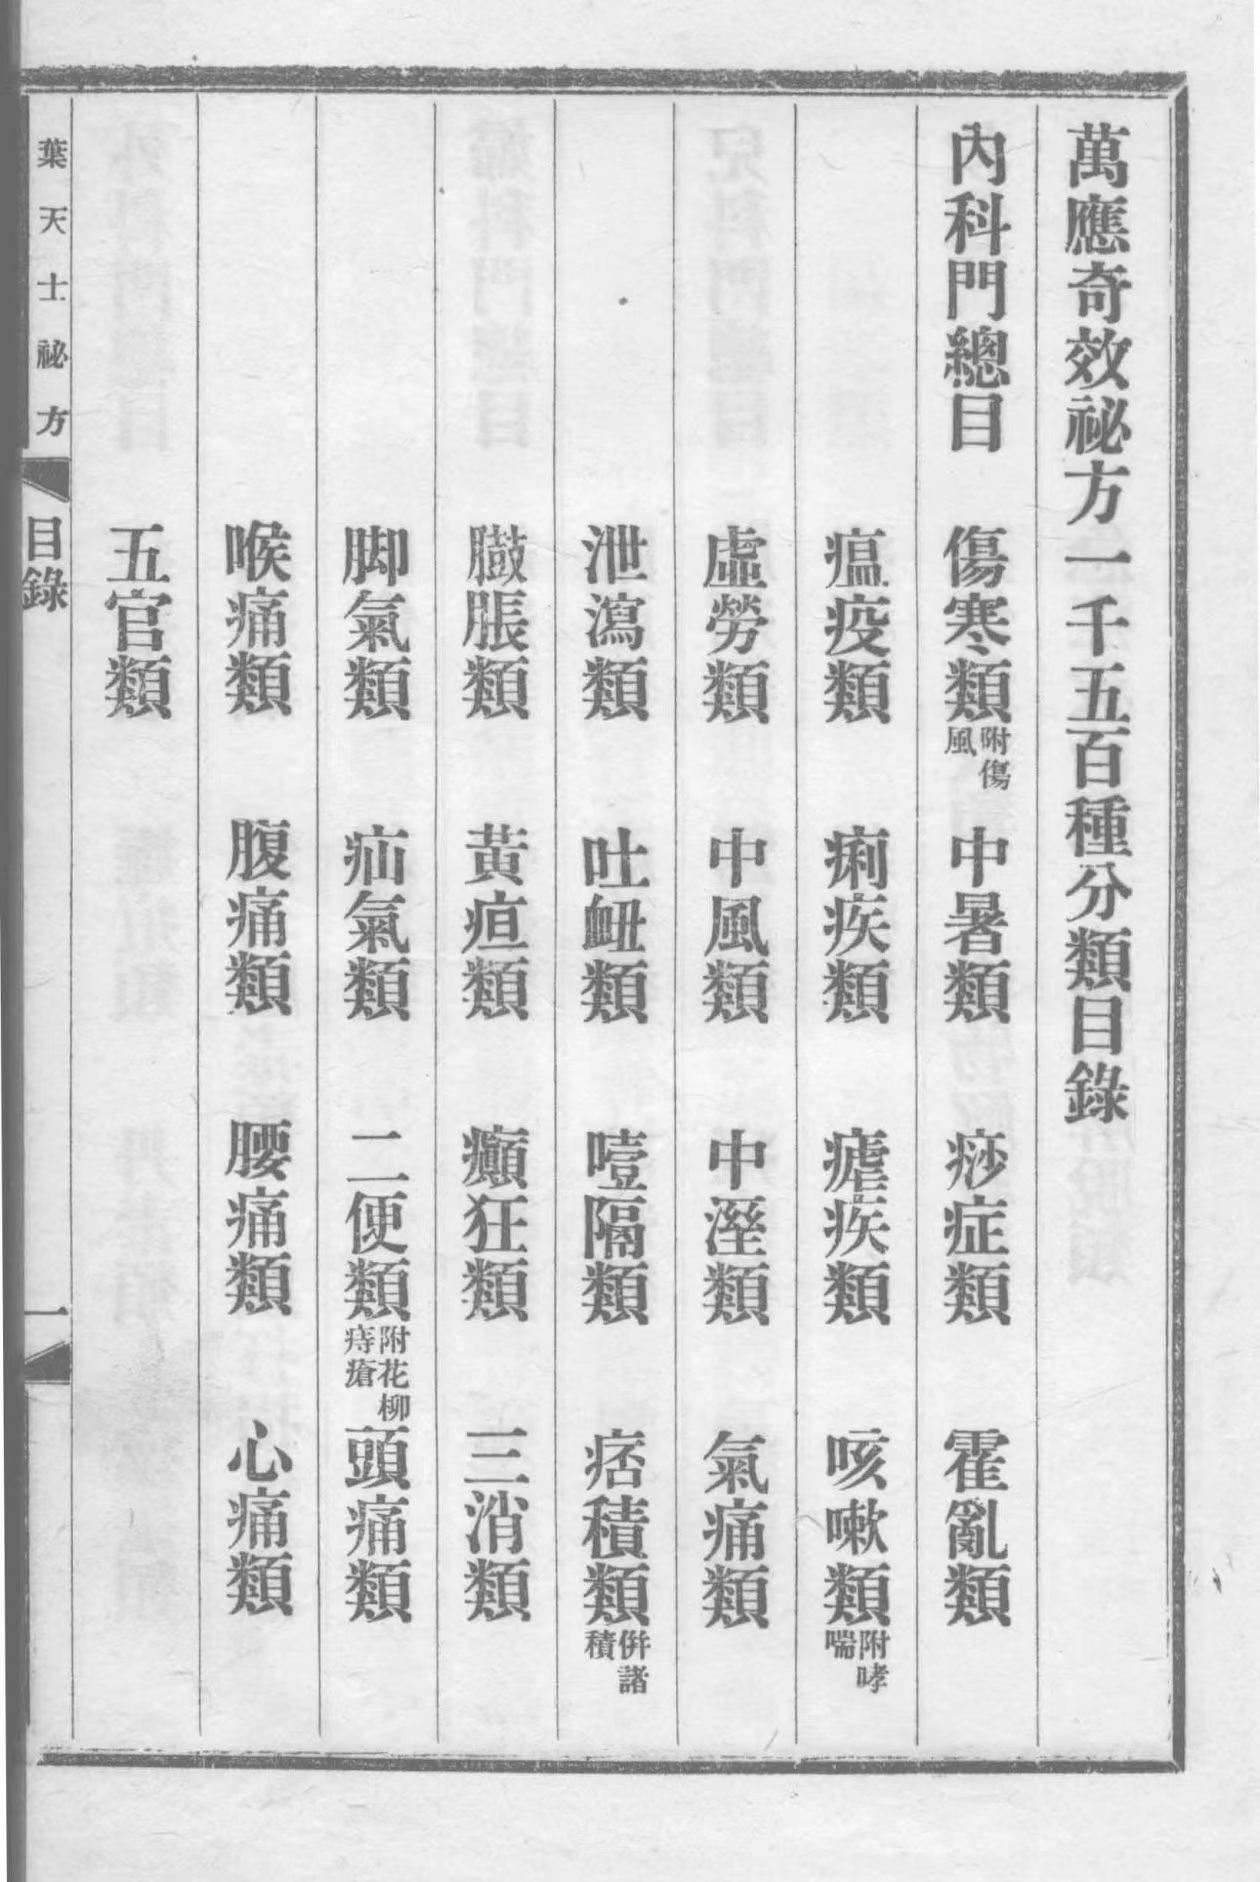 萬應奇效祕方一千五百種分類目錄
內科門總目　傷寒類附傷風　中暑類　痧症類　霍亂類
瘟疫類　痢疾類　瘧疾類　咳嗽類附哮喘
虛勞類　中風類　中溼類　氣痛類
泄瀉類　吐衄類　噎隔類　痞積類併諸積
臌脹類　黃疸類　癲狂類　三消類
脚氣類　疝氣類　二便類附花柳痔瘡　頭痛類
喉痛類　腹痛類　腰痛類　心痛類
五官類
葉天士祕方　目錄　一